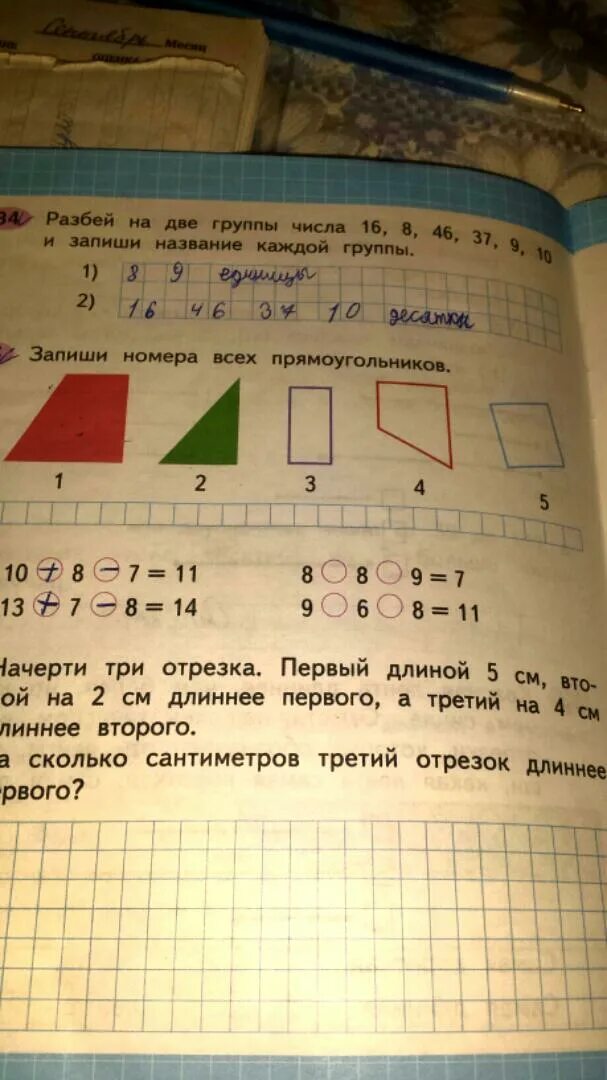 Сентябрь Месяц
34 Разбей на две группы числа 16, 8, 46, 37, 9, 10
и запиши название каждой группы.
1) 8 9 единицы
2) 16 46 37 10 десятки
Запиши номера всех прямоугольников.
1 2 3 4 5
10 + 8 − 7 = 11 8 ○ 8 ○ 9 = 7
13 + 7 − 8 = 14 9 ○ 6 ○ 8 = 11
Начерти три отрезка. Первый длиной 5 см, вто-
ой на 2 см длиннее первого, а третий на 4 см
линнее второго.
а сколько сантиметров третий отрезок длиннее
ервого?